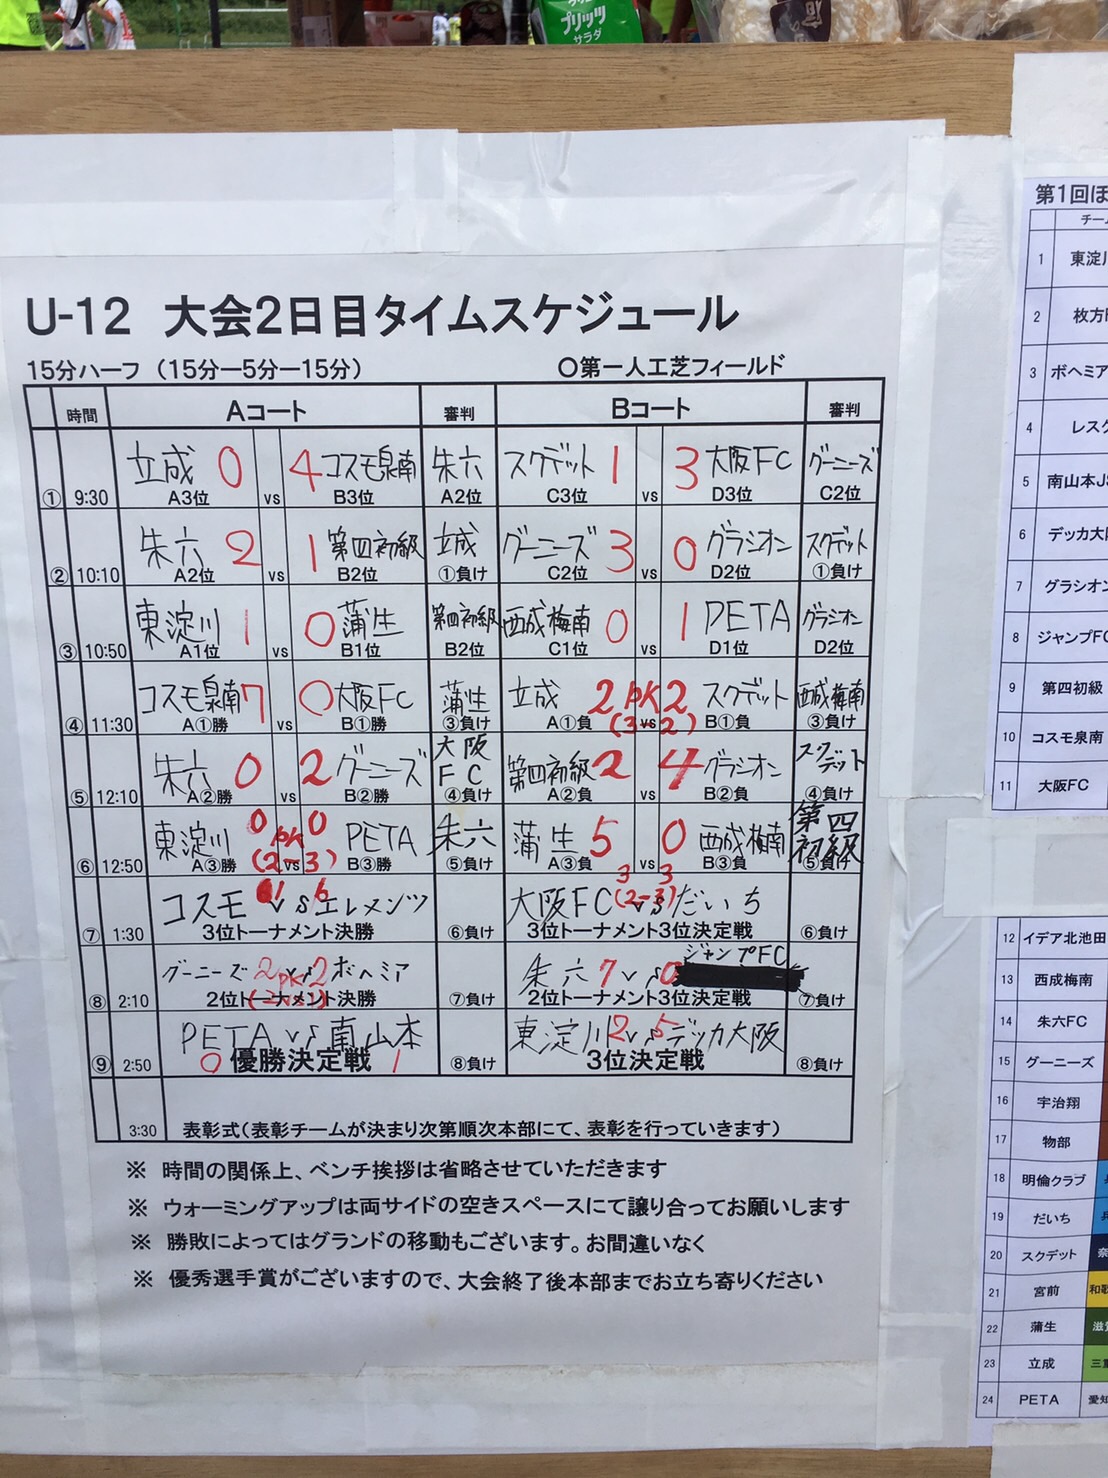 プリッツ
サラダ
U-12 大会2日目タイムスケジュール
15分ハーフ（15分ー5分ー15分） ○第一人工芝フィールド
時間 Aコート 審判 Bコート 審判
① 9:30 立成 0 vs 4 コスモ泉南 朱六 スクデット 1 vs 3 大阪FC グーニーズ
A3位 B3位 A2位 C3位 D3位 C2位
② 10:10 朱六 2 vs 1 第四初級 立成 グーニーズ 3 vs 0 グラシオン スクデット
A2位 B2位 ①負け C2位 D2位 ①負け
③ 10:50 東淀川 1 vs 0 蒲生 第四初級 西成梅南 0 vs 1 PETA グラシオン
A1位 B1位 B2位 C1位 D1位 D2位
④ 11:30 コスモ泉南 7 vs 0 大阪FC 蒲生 立成 2 PK 2 スクデット 西成梅南
A①勝 B①勝 ③負け A①負 (3 vs 2) B①負 ③負け
⑤ 12:10 朱六 0 vs 2 グーニーズ 大阪FC 第四初級 2 vs 4 グラシオン スクデット
A②勝 B②勝 ④負け A②負 B②負 ④負け
⑥ 12:50 東淀川 0 PK 0 PETA 朱六 蒲生 5 vs 0 西成梅南 第四初級
A③勝 (2 vs 3) B③勝 ⑤負け A③負 B③負 ⑤負け
⑦ 1:30 コスモ vs エレメンツ 6 ⑥負け 大阪FC 3 vs 3 だいち (2-3) ⑥負け
3位トーナメント決勝 3位トーナメント3位決定戦
⑧ 2:10 グーニーズ 2 vs 2 ボヘミア PK ⑦負け 朱六 7 vs 0 ジャンプFC ⑦負け
2位トーナメント決勝 2位トーナメント3位決定戦
⑨ 2:50 PETA vs 南山本 ⑧負け 東淀川 2 vs 5 デッカ大阪 ⑧負け
0 優勝決定戦 1 3位決定戦
3:30 表彰式（表彰チームが決まり次第順次本部にて、表彰を行っていきます）
※ 時間の関係上、ベンチ挨拶は省略させていただきます
※ ウォーミングアップは両サイドの空きスペースにて譲り合ってお願いします
※ 勝敗によってはグランドの移動もございます。お間違いなく
※ 優秀選手賞がございますので、大会終了後本部までお立ち寄りください
第1回ほ
チーム
1 東淀川
2 枚方
3 ボヘミア
4 レスク
5 南山本JS
6 デッカ大阪
7 グラシオン
8 ジャンプFC
9 第四初級
10 コスモ泉南
11 大阪FC
12 イデア北池田
13 西成梅南
14 朱六FC
15 グーニーズ
16 宇治翔
17 物部
18 明倫クラブ 兵
19 だいち 兵
20 スクデット 奈
21 宮前 和歌
22 蒲生 滋賀
23 立成 三重
24 PETA 愛知